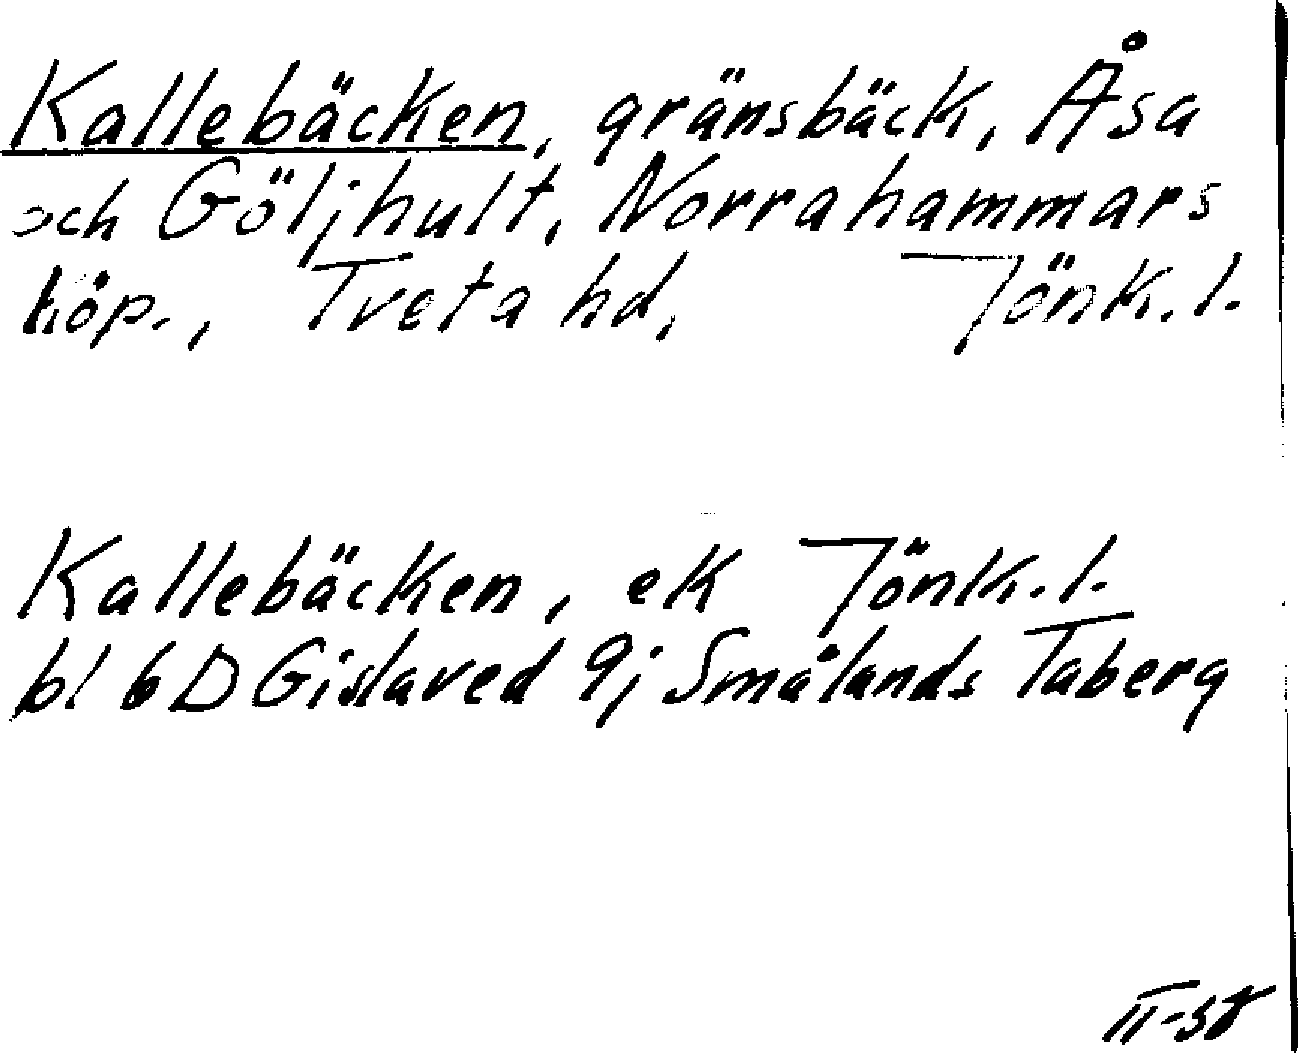 Kallebäcken, gränsbäck, Åsa
och Göljhult, Norrahammars
köp., Tveta hd, Jönk. l.
Kallebäcken, ek Jönk. l.
bl 6D Gislaved 9j Smålands Taberg